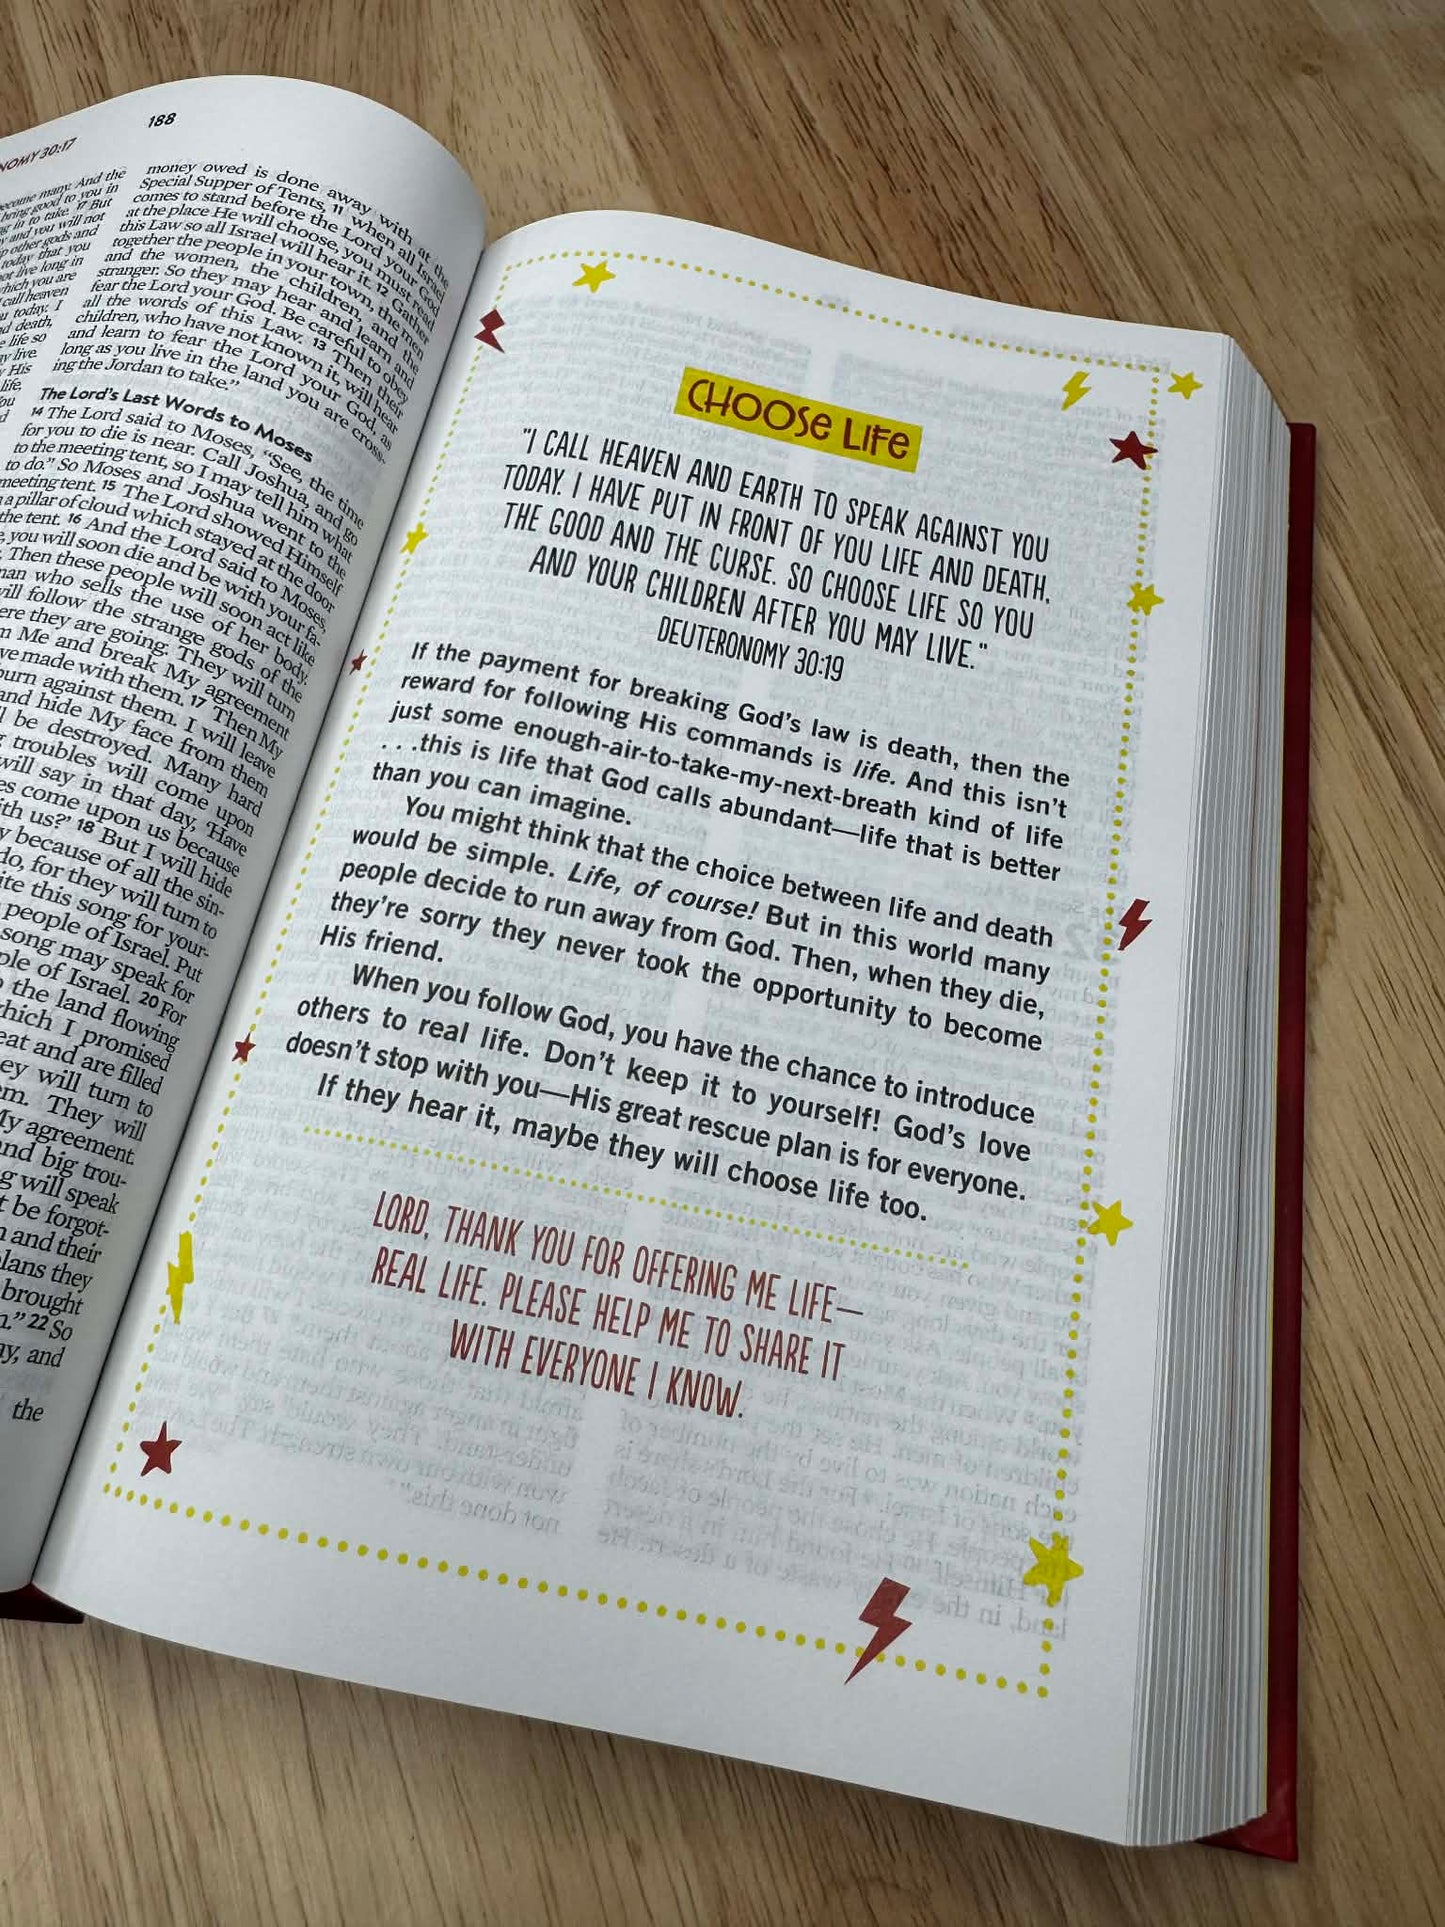 188
NOMY 30:17
become many. And the
bring good to you in
ng in to take. 17 But
y and you will not
p other gods and
today that you
not live long in
which you are
call heaven
u today. I
d death,
e life so
ay live.
His
life,
money owed is done away with, at the
Special Supper of Tents, 11 when all Israel
comes to stand before the Lord your God
at the place He will choose, you must read
this Law so all Israel will hear it. 12 Gather
together the people in your town, the men
and the women, the children, and the
stranger. So they may hear and learn and
fear the Lord your God. Be careful to obey
all the words of this Law. 13 Then their
children, who have not known it, will hear
and learn to fear the Lord your God, as
long as you live in the land you are cross-
ing the Jordan to take."
The Lord's Last Words to Moses
14 The Lord said to Moses, "See, the time
for you to die is near. Call Joshua, and go
to the meeting tent, so I may tell him what
to do." So Moses and Joshua went to the
meeting tent. 15 The Lord showed Himself
a pillar of cloud which stayed at the door
the tent. 16 And the Lord said to Moses,
you will soon die and be with your fa-
Then these people will soon act like
man who sells the use of her body.
ill follow the strange gods of the
ere they are going. They will turn
m Me and break My agreement
ve made with them. 17 Then My
burn against them. I will leave
and hide My face from them
l be destroyed. Many hard
g troubles will come upon
will say in that day, 'Have
es come upon us because
ith us?' 18 But I will hide
y because of all the sin-
do, for they will turn to
ite this song for your-
people of Israel. Put
song may speak for
ple of Israel. 20 For
o the land flowing
hich I promised
eat and are filled
ey will turn to
em. They will
My agreement.
nd big trou-
g will speak
t be forgot-
n and their
lans they
brought
n." 22 So
ay, and
the
CHOOSE LIFE
"I CALL HEAVEN AND EARTH TO SPEAK AGAINST YOU
TODAY. I HAVE PUT IN FRONT OF YOU LIFE AND DEATH,
THE GOOD AND THE CURSE. SO CHOOSE LIFE SO YOU
AND YOUR CHILDREN AFTER YOU MAY LIVE."
DEUTERONOMY 30:19
If the payment for breaking God's law is death, then the
reward for following His commands is life. And this isn't
just some enough-air-to-take-my-next-breath kind of life
. . .this is life that God calls abundant—life that is better
than you can imagine.
You might think that the choice between life and death
would be simple. Life, of course! But in this world many
people decide to run away from God. Then, when they die,
they're sorry they never took the opportunity to become
His friend.
When you follow God, you have the chance to introduce
others to real life. Don't keep it to yourself! God's love
doesn't stop with you—His great rescue plan is for everyone.
If they hear it, maybe they will choose life too.
LORD, THANK YOU FOR OFFERING ME LIFE—
REAL LIFE. PLEASE HELP ME TO SHARE IT
WITH EVERYONE I KNOW.